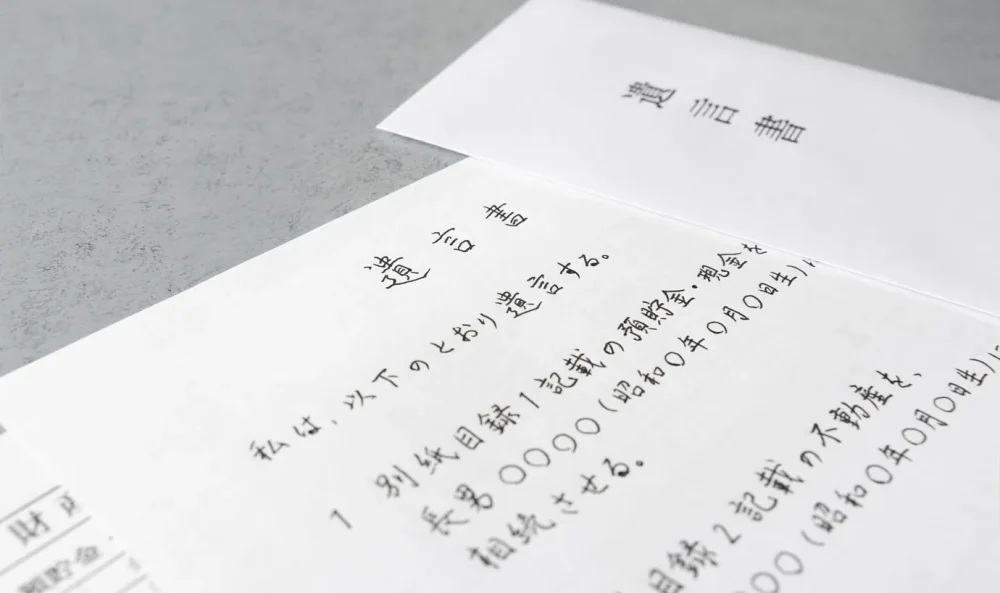 遺言書
遺言書
私は、以下のとおり遺言する。
1 別紙目録1記載の預貯金・現金を
長男〇〇〇〇(昭和〇年〇月〇日生)に
相続させる。
目録2記載の不動産を、
〇〇(昭和〇年〇月〇日生)に
財
預貯金